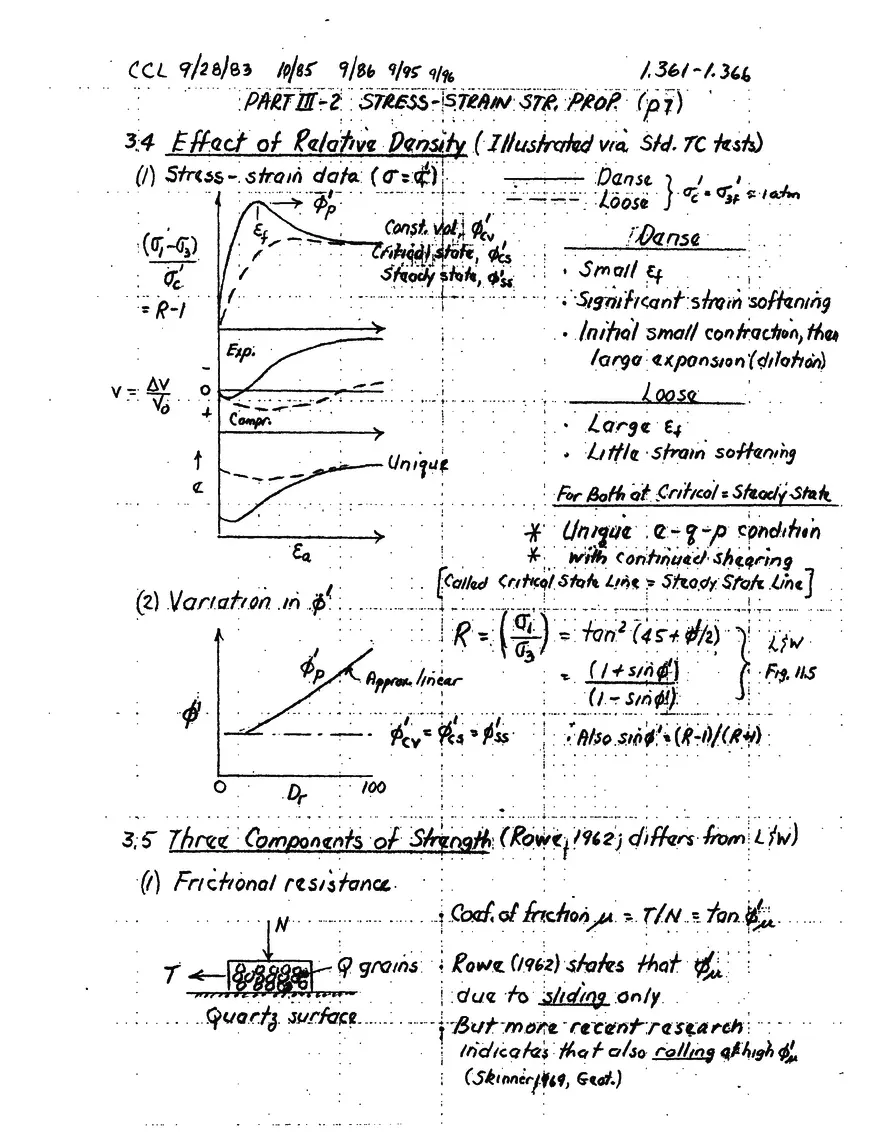 CCL 9/28/83 10/85 9/86 9/95 9/96 1.361-1.366
PART III-2 STRESS-STRAIN STR. PROP. (p7)
3.4 Effect of Relative Density (Illustrated via Std. TC tests)
(1) Stress-strain data (σ=σc')
Dense
Loose
σc' = σ3f' ≈ 1 atm
(σ1'-σ3)
σc'
= R-1
φp'
εf
Const. vol., φcv'
Critical state, φcs'
Steady state, φss'
Exp.
-
0
+
Compr.
V = ΔV
V0
↑
e
Unique
εa
Dense
• Small εf
• Significant strain softening
• Initial small contraction, then
large expansion (dilation)
Loose
• Large εf
• Little strain softening
For Both at Critical = Steady State
* Unique e-q-p condition
* with continued shearing
[Called Critical State Line = Steady State Line]
(2) Variation in φ'
φ'
φp'
Approx. linear
φcv' = φcs' = φss'
0 Dr 100
R = (σ1'/σ3) = tan² (45+φ'/2)
= (1+sinφ')
(1-sinφ')
L&W
Fig. 11.5
• Also sinφ' = (R-1)/(R+1)
3.5 Three Components of Strength (Rowe, 1962; differs from L&W)
(1) Frictional resistance
N
T
Q grains
Quartz surface
• Coef. of friction μ = T/N = tan φμ'
• Rowe (1962) states that φμ'
due to sliding only
• But more recent research
indicates that also rolling at high φμ'
(Skinner, 1969, Geot.)